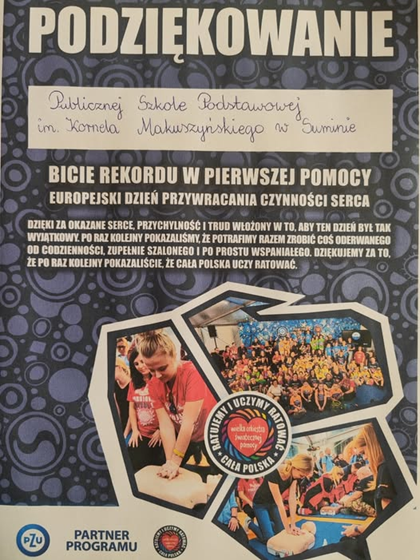 PODZIĘKOWANIE
Publicznej Szkole Podstawowej
im. Kornela Makuszyńskiego w Suminie
BICIE REKORDU W PIERWSZEJ POMOCY
EUROPEJSKI DZIEŃ PRZYWRACANIA CZYNNOŚCI SERCA
DZIĘKI ZA OKAZANE SERCE, PRZYCHYLNOŚĆ I TRUD WŁOŻONY W TO, ABY TEN DZIEŃ BYŁ TAK
WYJĄTKOWY. PO RAZ KOLEJNY POKAZALIŚMY, ŻE POTRAFIMY RAZEM ZROBIĆ COŚ ODERWANEGO
OD CODZIENNOŚCI, ZUPEŁNIE SZALONEGO I PO PROSTU WSPANIAŁEGO. DZIĘKUJEMY ZA TO,
ŻE PO RAZ KOLEJNY POKAZALIŚCIE, ŻE CAŁA POLSKA UCZY RATOWAĆ.
RATUJEMY I UCZYMY RATOWAĆ
wielka orkiestra
świątecznej
pomocy
CAŁA POLSKA
PZU
PARTNER
PROGRAMU